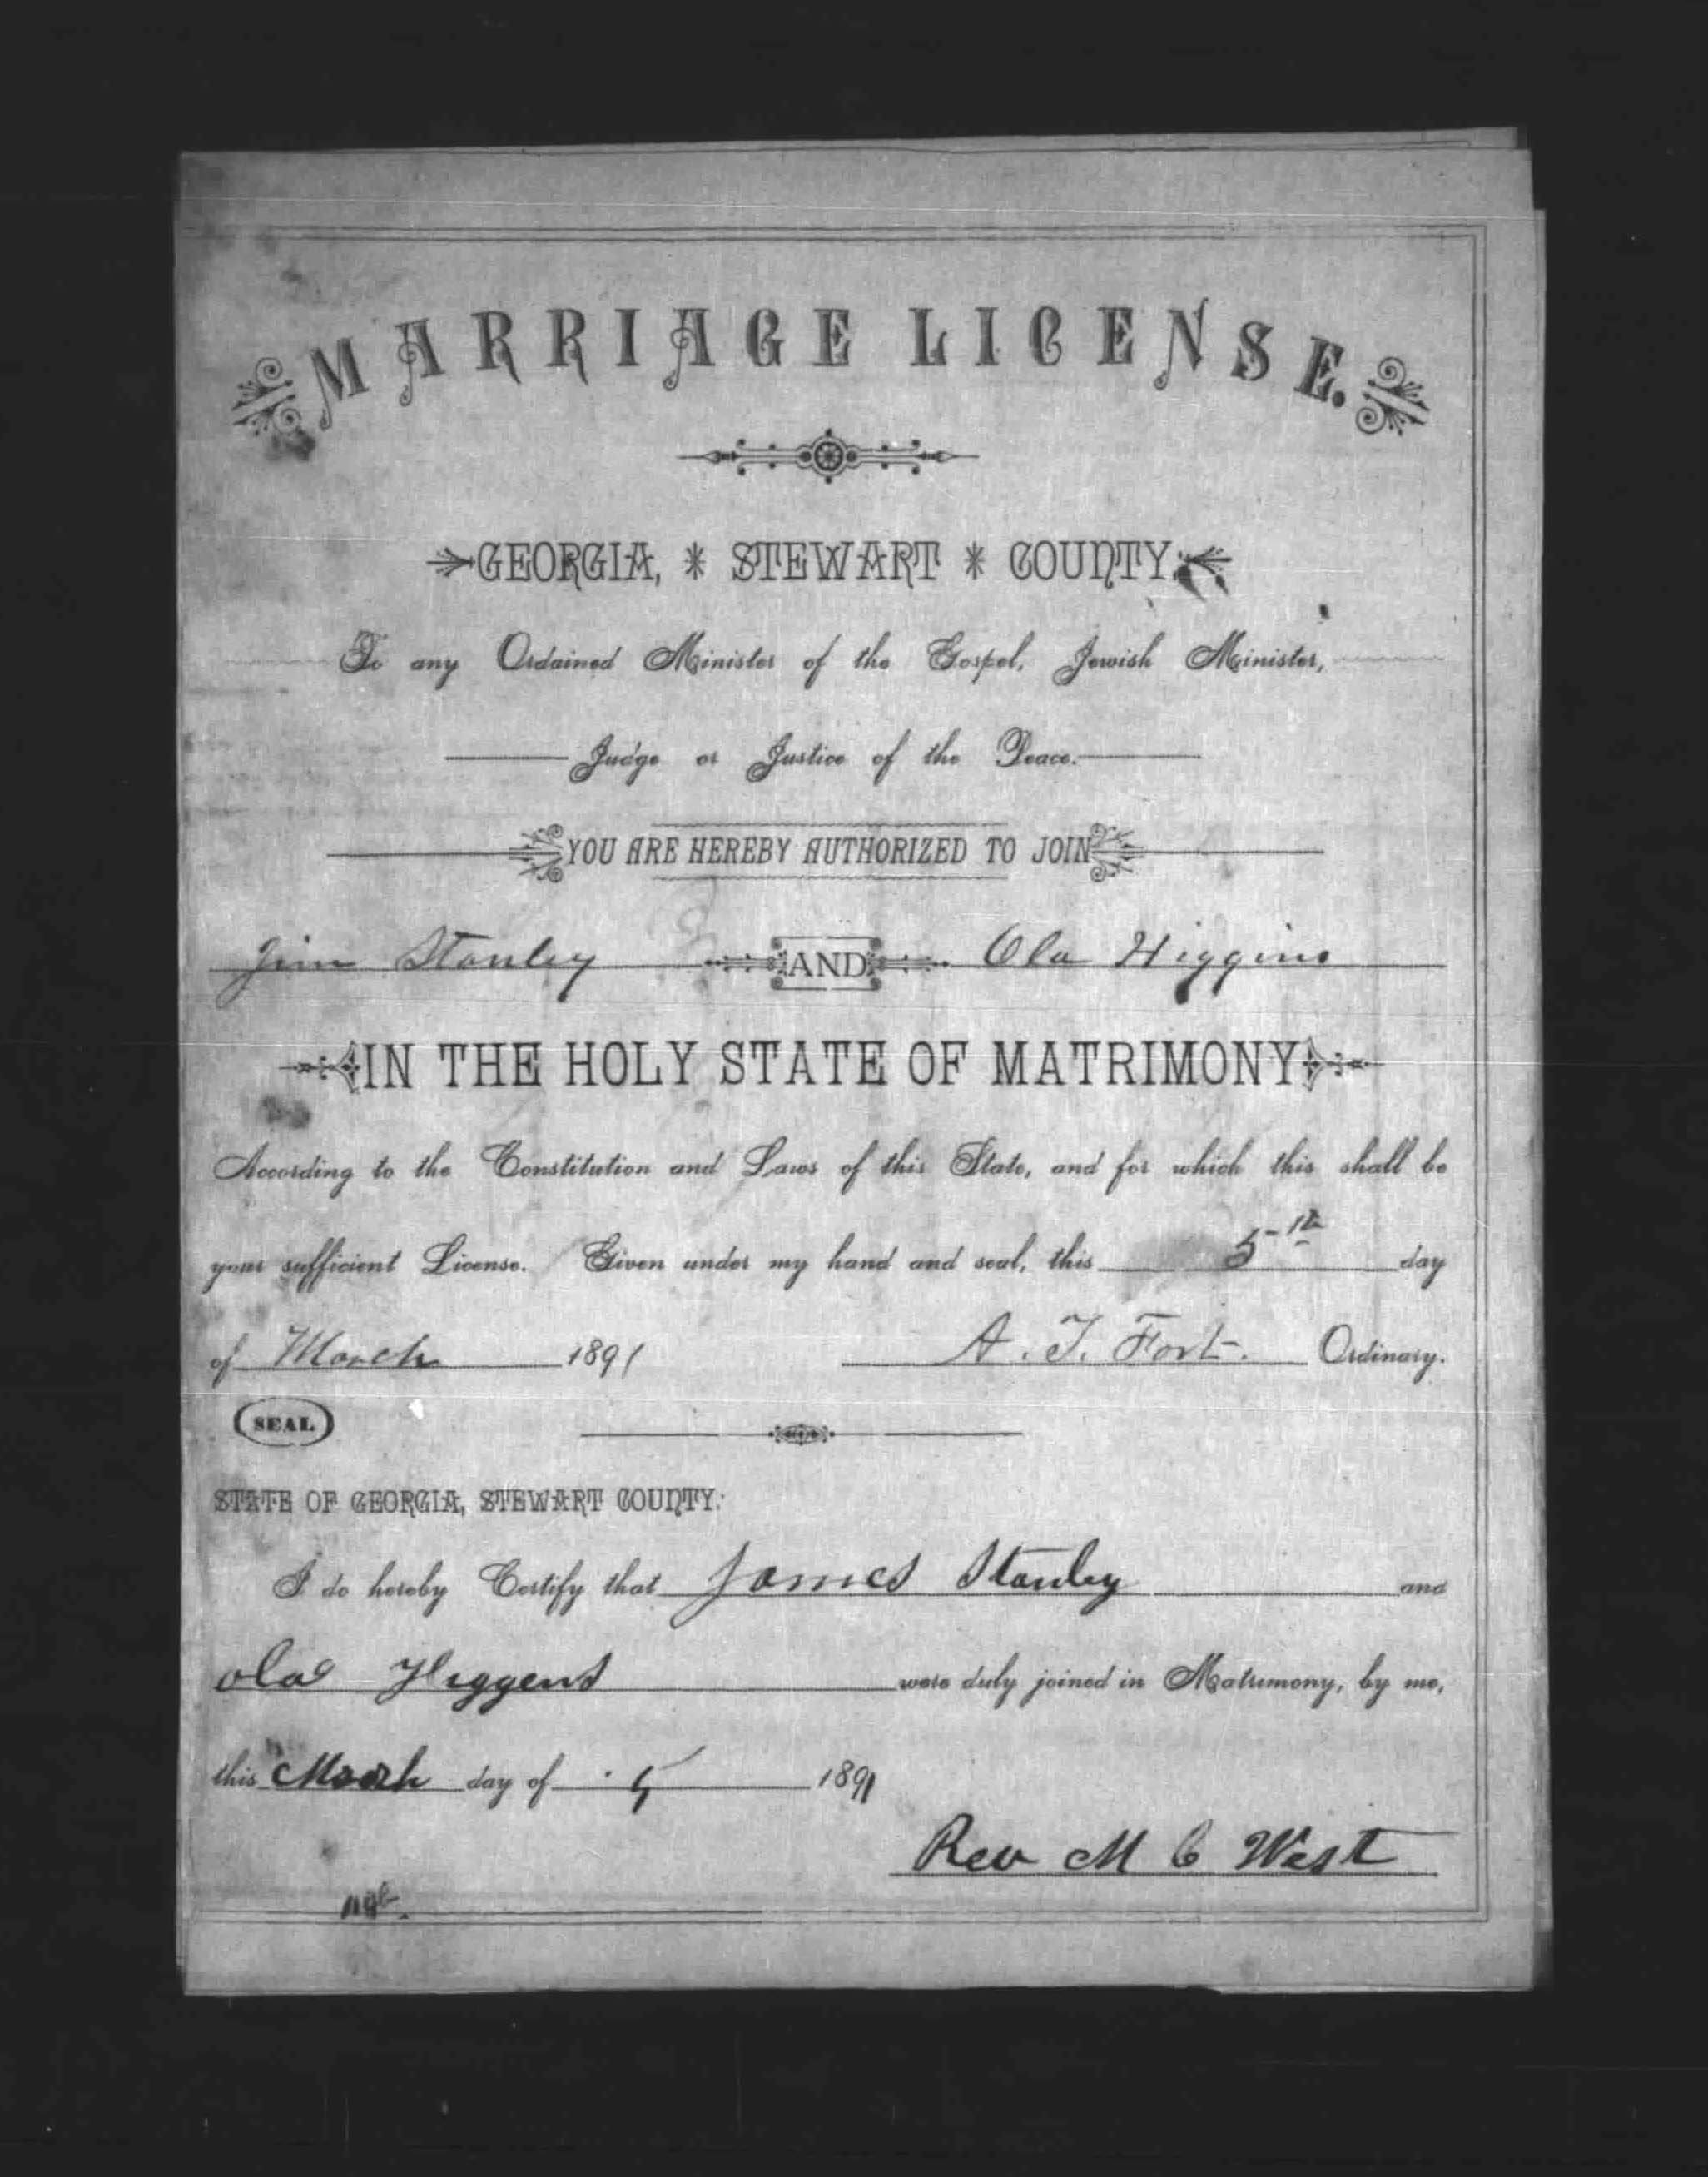 MARRIAGE LICENSE.
GEORGIA, * STEWART * COUNTY.
To any Ordained Minister of the Gospel, Jewish Minister,
Judge or Justice of the Peace.
YOU ARE HEREBY AUTHORIZED TO JOIN
Jim Stanley AND Ola Higgins
IN THE HOLY STATE OF MATRIMONY
According to the Constitution and Laws of this State, and for which this shall be
your sufficient License. Given under my hand and seal, this 5th day
of March 1891 A. T. Fort. Ordinary.
SEAL
STATE OF GEORGIA, STEWART COUNTY.
I do hereby Certify that James Stanley and
ola Higgens were duly joined in Matrimony, by me,
this March day of 5 1891
Rev M C West